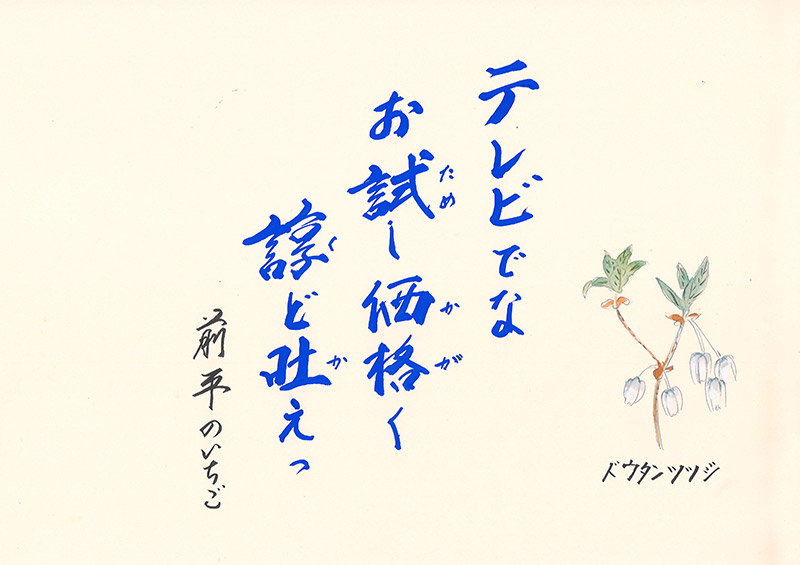 テレビでな
お試し価格く
諄ど吐えっ
ため
かが
く
か
前平のいちご
ドウタンツツジ